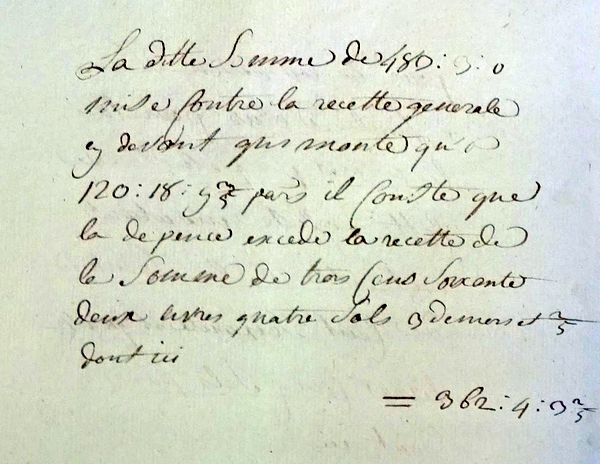 La ditte Somme de 483:3:0
mise Contre la recette generale
cy devant qui monte qu'a
120:18:9 2/5 pars il Conste que
la depence excede la recette de
la Somme de trois Cens Soixante
deux livres quatre Sols 3 deniers et 2/5
dont ici
= 362:4:3 2/5